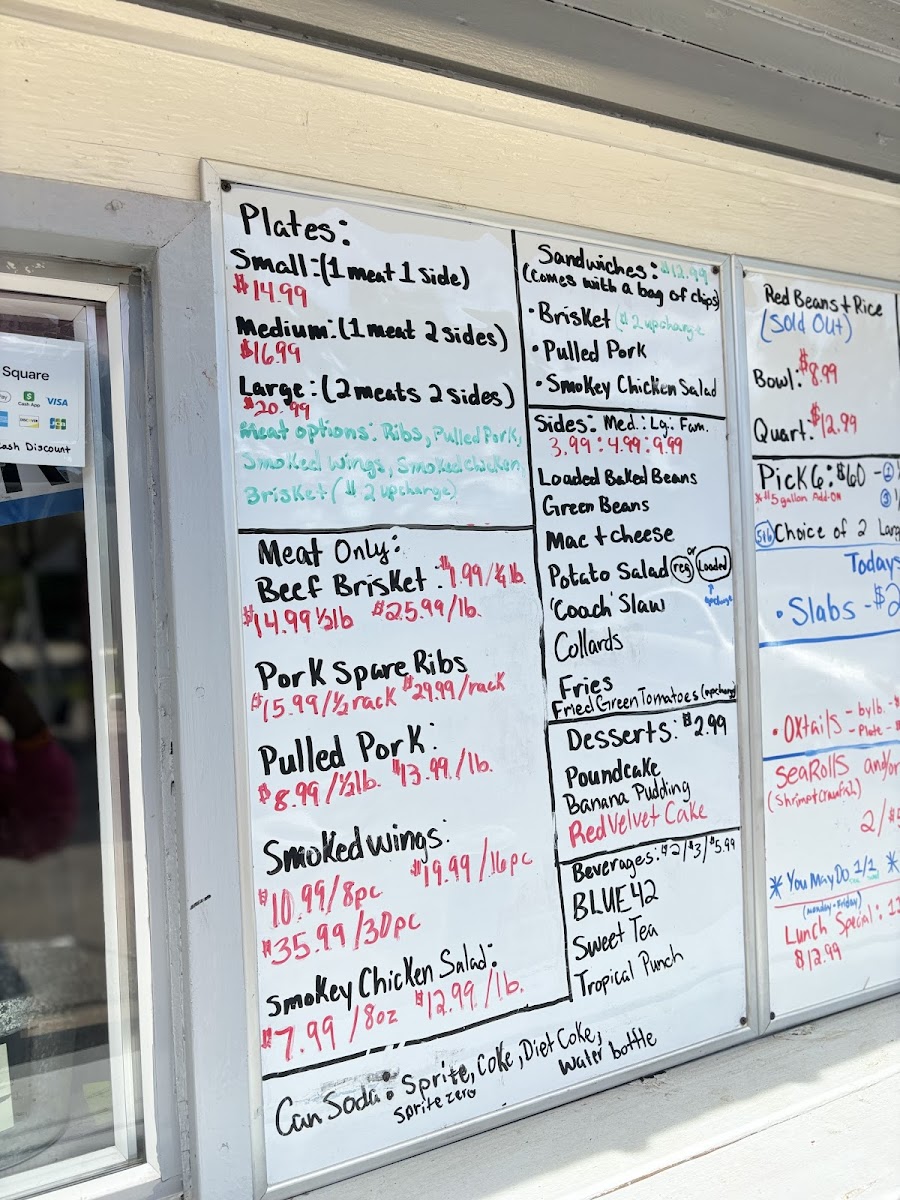 Square
Pay
Cash App
VISA
DISCOVER
JCB
Cash Discount
Plates:
Small:(1 meat 1 side)
$14.99
Medium:(1 meat 2 sides)
$16.99
Large:(2 meats 2 sides)
$20.99
Meat options: Ribs, Pulled Pork,
Smoked Wings, Smoked Chicken,
Brisket ($2 upcharge)
Meat Only:
Beef Brisket: $7.99/¼ lb.
$14.99 ½lb $25.99/lb.
Pork Spare Ribs
$15.99/½ rack $29.99/rack
Pulled Pork:
$8.99/½lb. $13.99/lb.
Smoked wings:
$10.99/8pc $19.99/16pc
$35.99/30pc
Smokey Chicken Salad:
$7.99/8oz $12.99/lb.
Can Soda: Sprite, Coke, Diet Coke,
Sprite zero water bottle
Sandwiches: $12.99
(comes with a bag of chips)
•Brisket ($2 upcharge
•Pulled Pork
•Smokey Chicken Salad
Sides: Med.: Lg.: Fam.
3.99 : 4.99 : 9.99
Loaded Baked Beans
Green Beans
Mac + cheese
Potato Salad reg or Loaded
↑
upcharge
'Coach' Slaw
Collards
Fries
Fried Green Tomatoes (upcharge)
Desserts: $2.99
Poundcake
Banana Pudding
Red Velvet Cake
Beverages: $2/$3/$5.99
BLUE 42
Sweet Tea
Tropical Punch
Red Beans + Rice
(Sold Out)
Bowl: $8.99
Quart: $12.99
Pick 6: $60 - ②
*$5 gallon Add-ON ③
5+6 Choice of 2 Larg
Todays
• Slabs - $2
• Oxtails - by lb. - $
- Plate - $
Sea Rolls and/or
(Shrimp+Crawfish)
2/$
* You May Do 1/1 *
(monday-friday)
Lunch Special: 1
$12.99